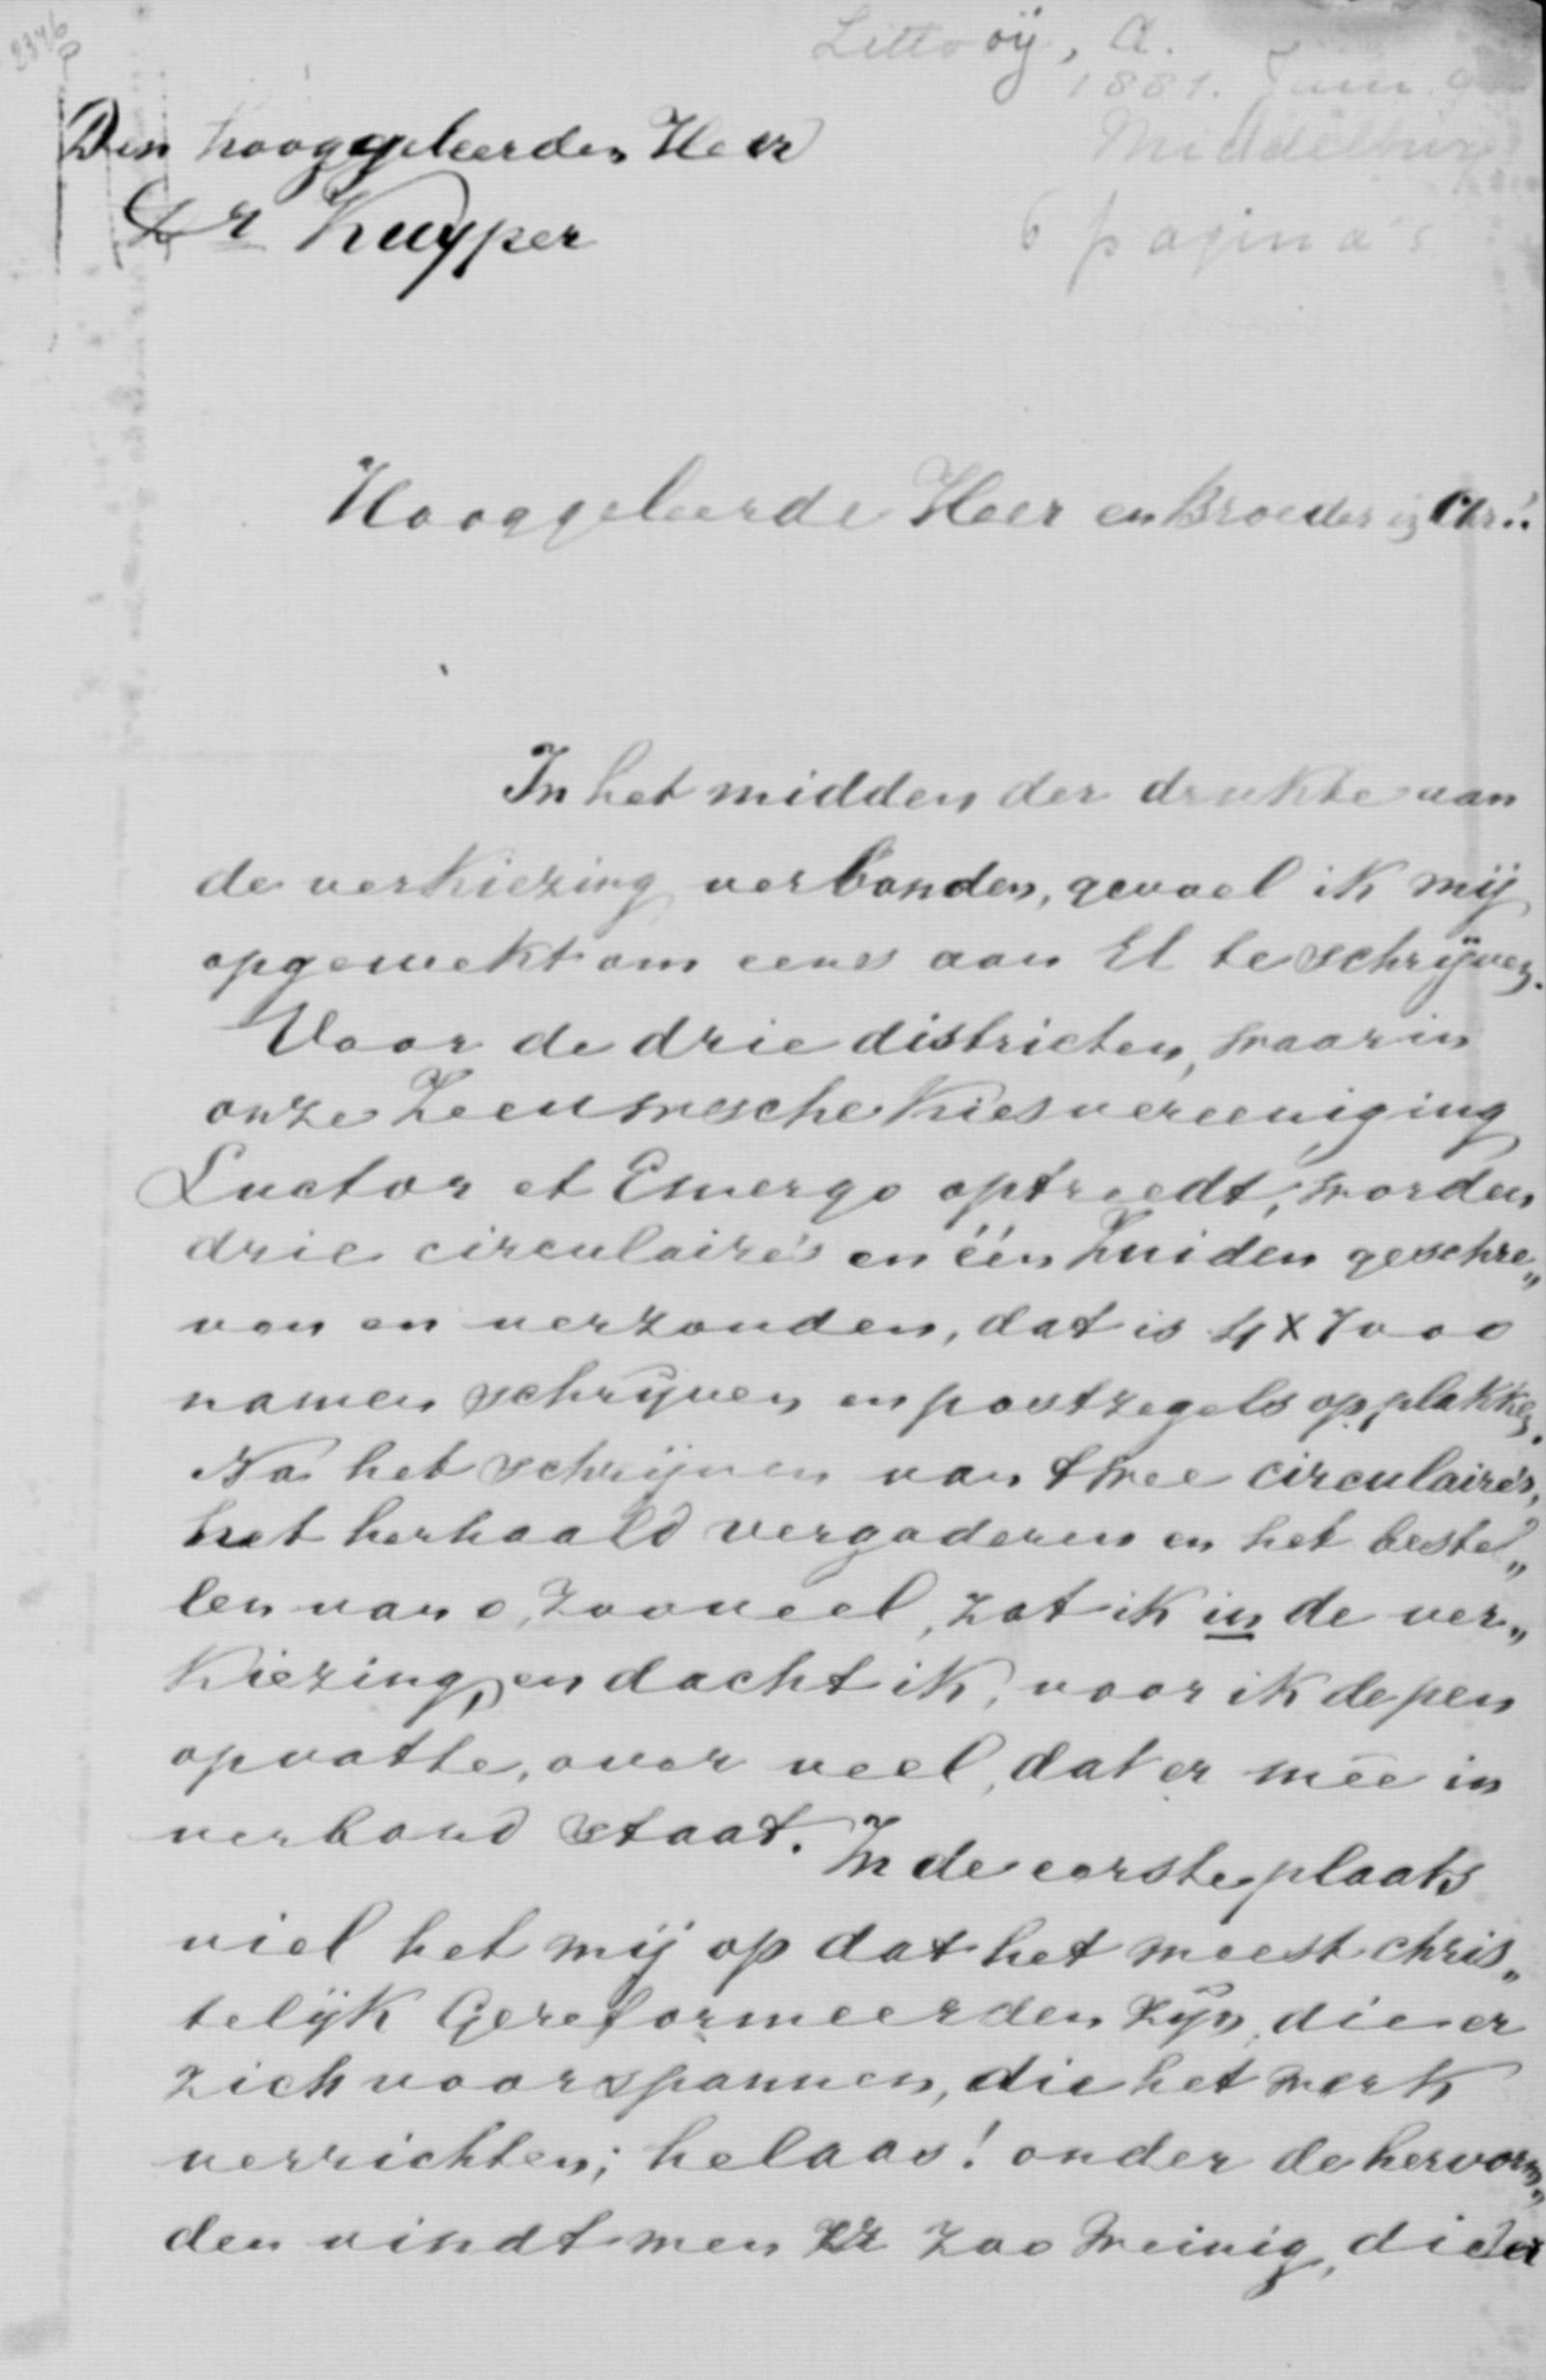 2346
Littooÿ, A.
1881. Juni 9
Middelburg
6 pagina's
Den hooggeleerden Heer
Dr Kuyper
Hooggeleerde Heer en Broeder in Chr.!
In het midden der drukte aan
de verkiezing verbonden, gevoel ik mij
opgewekt om eens aan El te schrijven.
Voor de drie districten, waarin
onze Zeeuwsche Kiesvereeniging
Luctor et Emergo optreedt, worden
drie circulaire's en één Zuiden geschre„
ven en verzonden, dat is 4 x 7000
namen schrijven en postzegels opplakken.
Na het schrijven van twee circulaire's,
het herhaald vergaderen en het bestel„
len van o, zooveel, zat ik in de ver„
kiezing, en dacht ik, voor ik de pen
opvatte, over veel, dat er meê in
verband staat. In de eerste plaats
viel het mij op dat het meest chris„
telijk Gereformeerden zijn, die er
zich voorspannen, die het werk
verrichten; helaas! onder de hervorm„
den vindt men er zoo weinig, die er